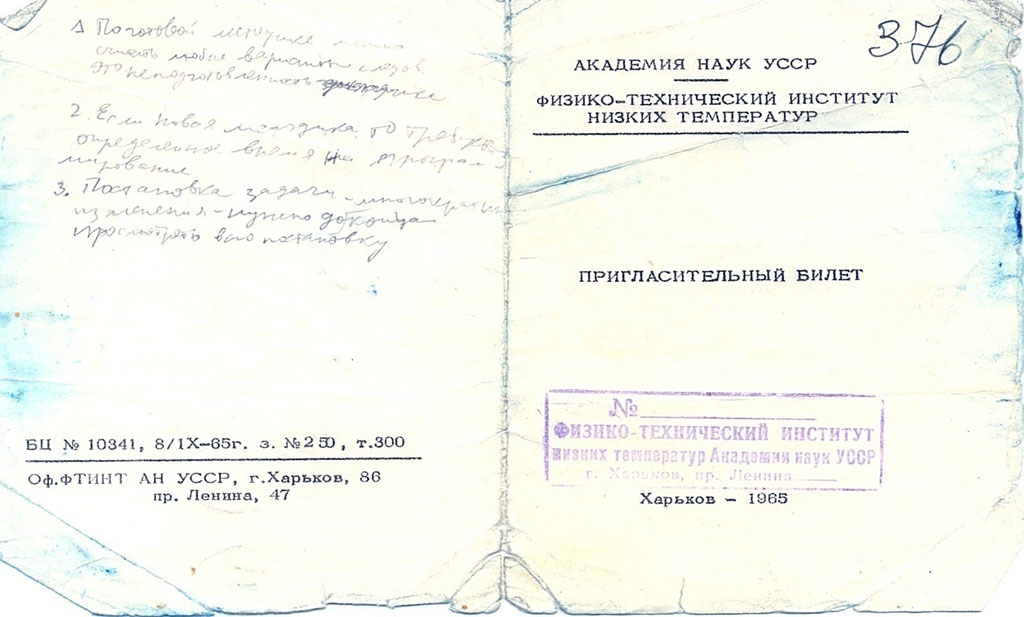 1 По готовой методике можно
считать любые варианты следов.
Это неподготовленность
2. Если новая методика, то требует
определенное время на програм-
мирование
3. Постановка задачи - многократные
изменения - нужно до конца
просмотреть всю постановку
БЦ № 10341, 8/IX-65г. з. №250, т.300
Оф.ФТИНТ АН УССР, г.Харьков, 86
пр. Ленина, 47
376
АКАДЕМИЯ НАУК УССР
ФИЗИКО-ТЕХНИЧЕСКИЙ ИНСТИТУТ
НИЗКИХ ТЕМПЕРАТУР
ПРИГЛАСИТЕЛЬНЫЙ БИЛЕТ
№
ФИЗИКО-ТЕХНИЧЕСКИЙ ИНСТИТУТ
низких температур Академии наук УССР
г. Харьков, пр. Ленина
Харьков - 1965